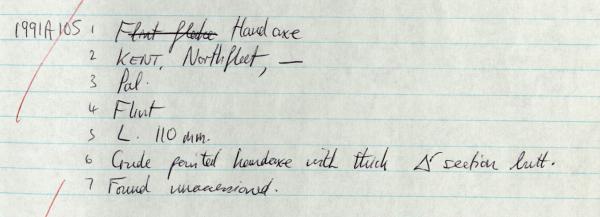 1991A105 1 Flint flake Handaxe
2 KENT, Northfleet, —
3 Pal.
4 Flint
5 L. 110 mm.
6 Crude pointed handaxe with thick Δ section butt.
7 Found unaccessioned.